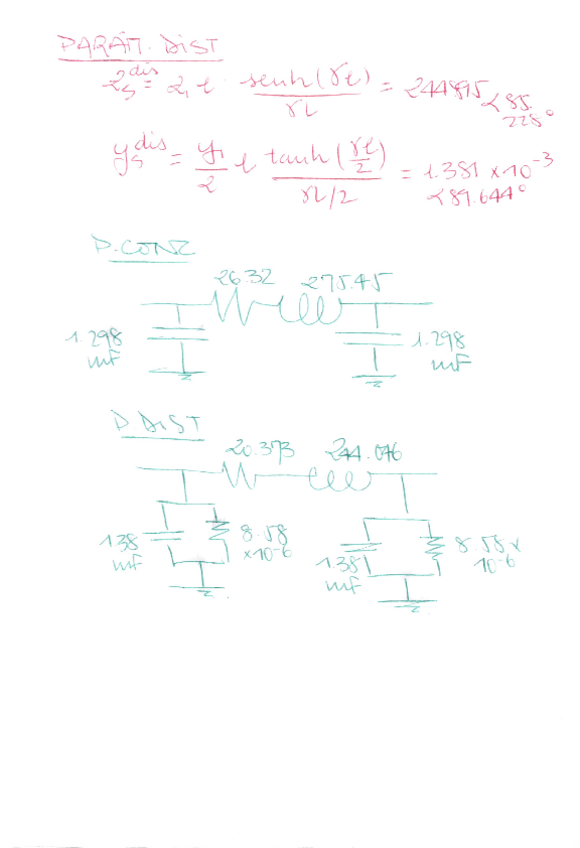 PARAM. DIST
Z_S^dis = Z_1 ℓ · senh(γℓ) / γL = 244.895 ∠85.228°
y_S^dis = y_1/2 ℓ tanh(γℓ/2) / γL/2 = 1.381 x10^-3 ∠89.644°
P.CONZ
26.32 275.45
1.298 mF
1.298 mF
P DIST
20.373 244.046
138 mF
8.58 x10-6
1.381 mF
8.58 x 10-6